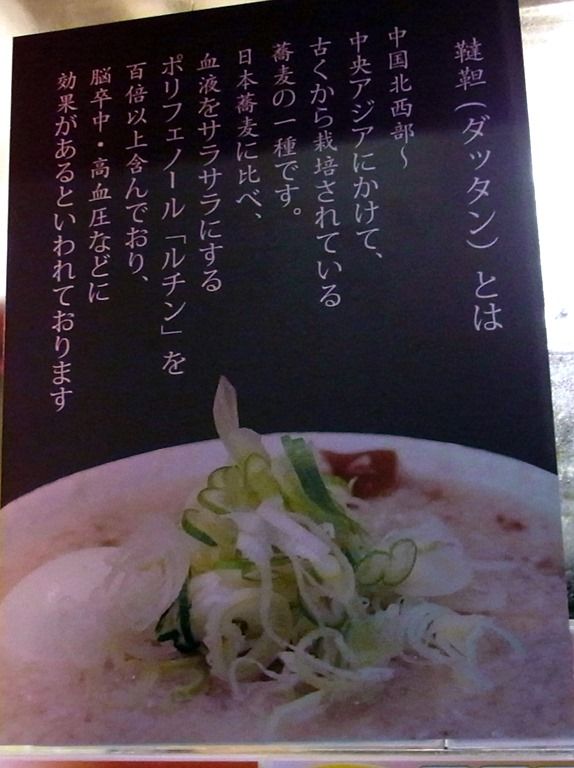 韃靼（ダッタン）とは
中国北西部〜
中央アジアにかけて、
古くから栽培されている
蕎麦の一種です。
日本蕎麦に比べ、
血液をサラサラにする
ポリフェノール「ルチン」を
百倍以上含んでおり、
脳卒中・高血圧などに
効果があるといわれております